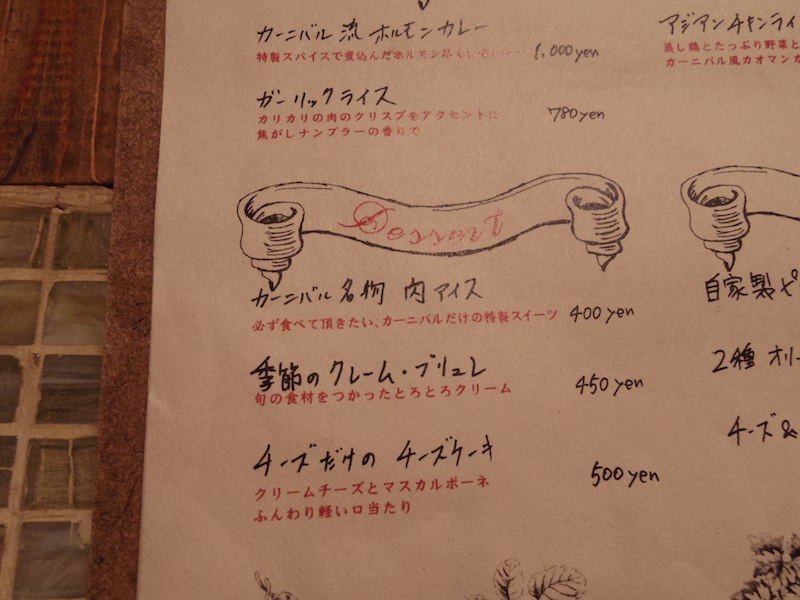 カーニバル流 ホルモンカレー
1,000yen
特製スパイスで煮込んだホルモン
ガーリックライス
780yen
カリカリの肉のクリスプをアクセントに
焦がしナンプラーの香りで
Dessert
カーニバル名物 肉アイス
必ず食べて頂きたい、カーニバルだけの特製スイーツ
400yen
季節のクレーム・ブリュレ
旬の食材をつかったとろとろクリーム
450yen
チーズだけの チーズケーキ
500yen
クリームチーズとマスカルポーネ
ふんわり軽い口当たり
アジアンチキンライ
蒸し鶏とたっぷり野菜と
カーニバル風カオマンガ
自家製ピ
2種 オリー
チーズ&